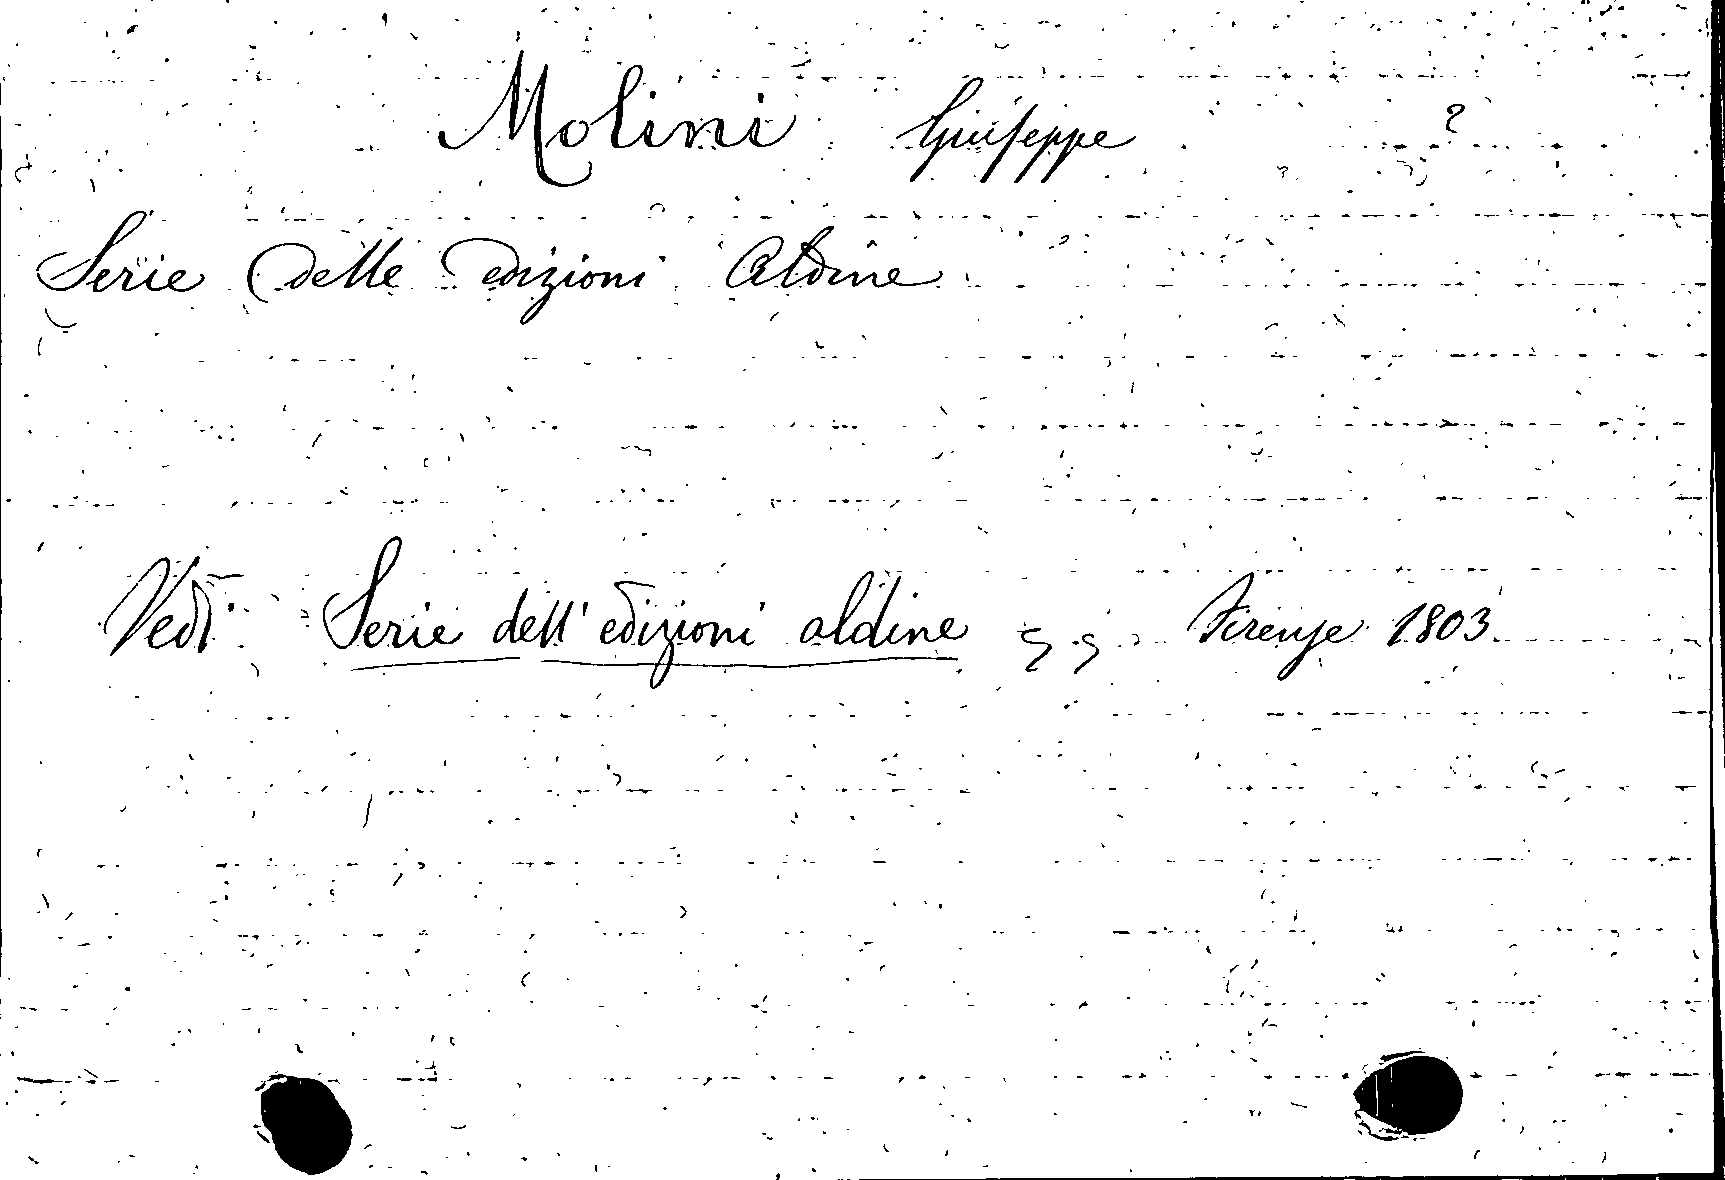 Molini Giuseppe ?
Serie delle edizioni Aldine
Vedi Serie dell'edizioni aldine Firenze 1803